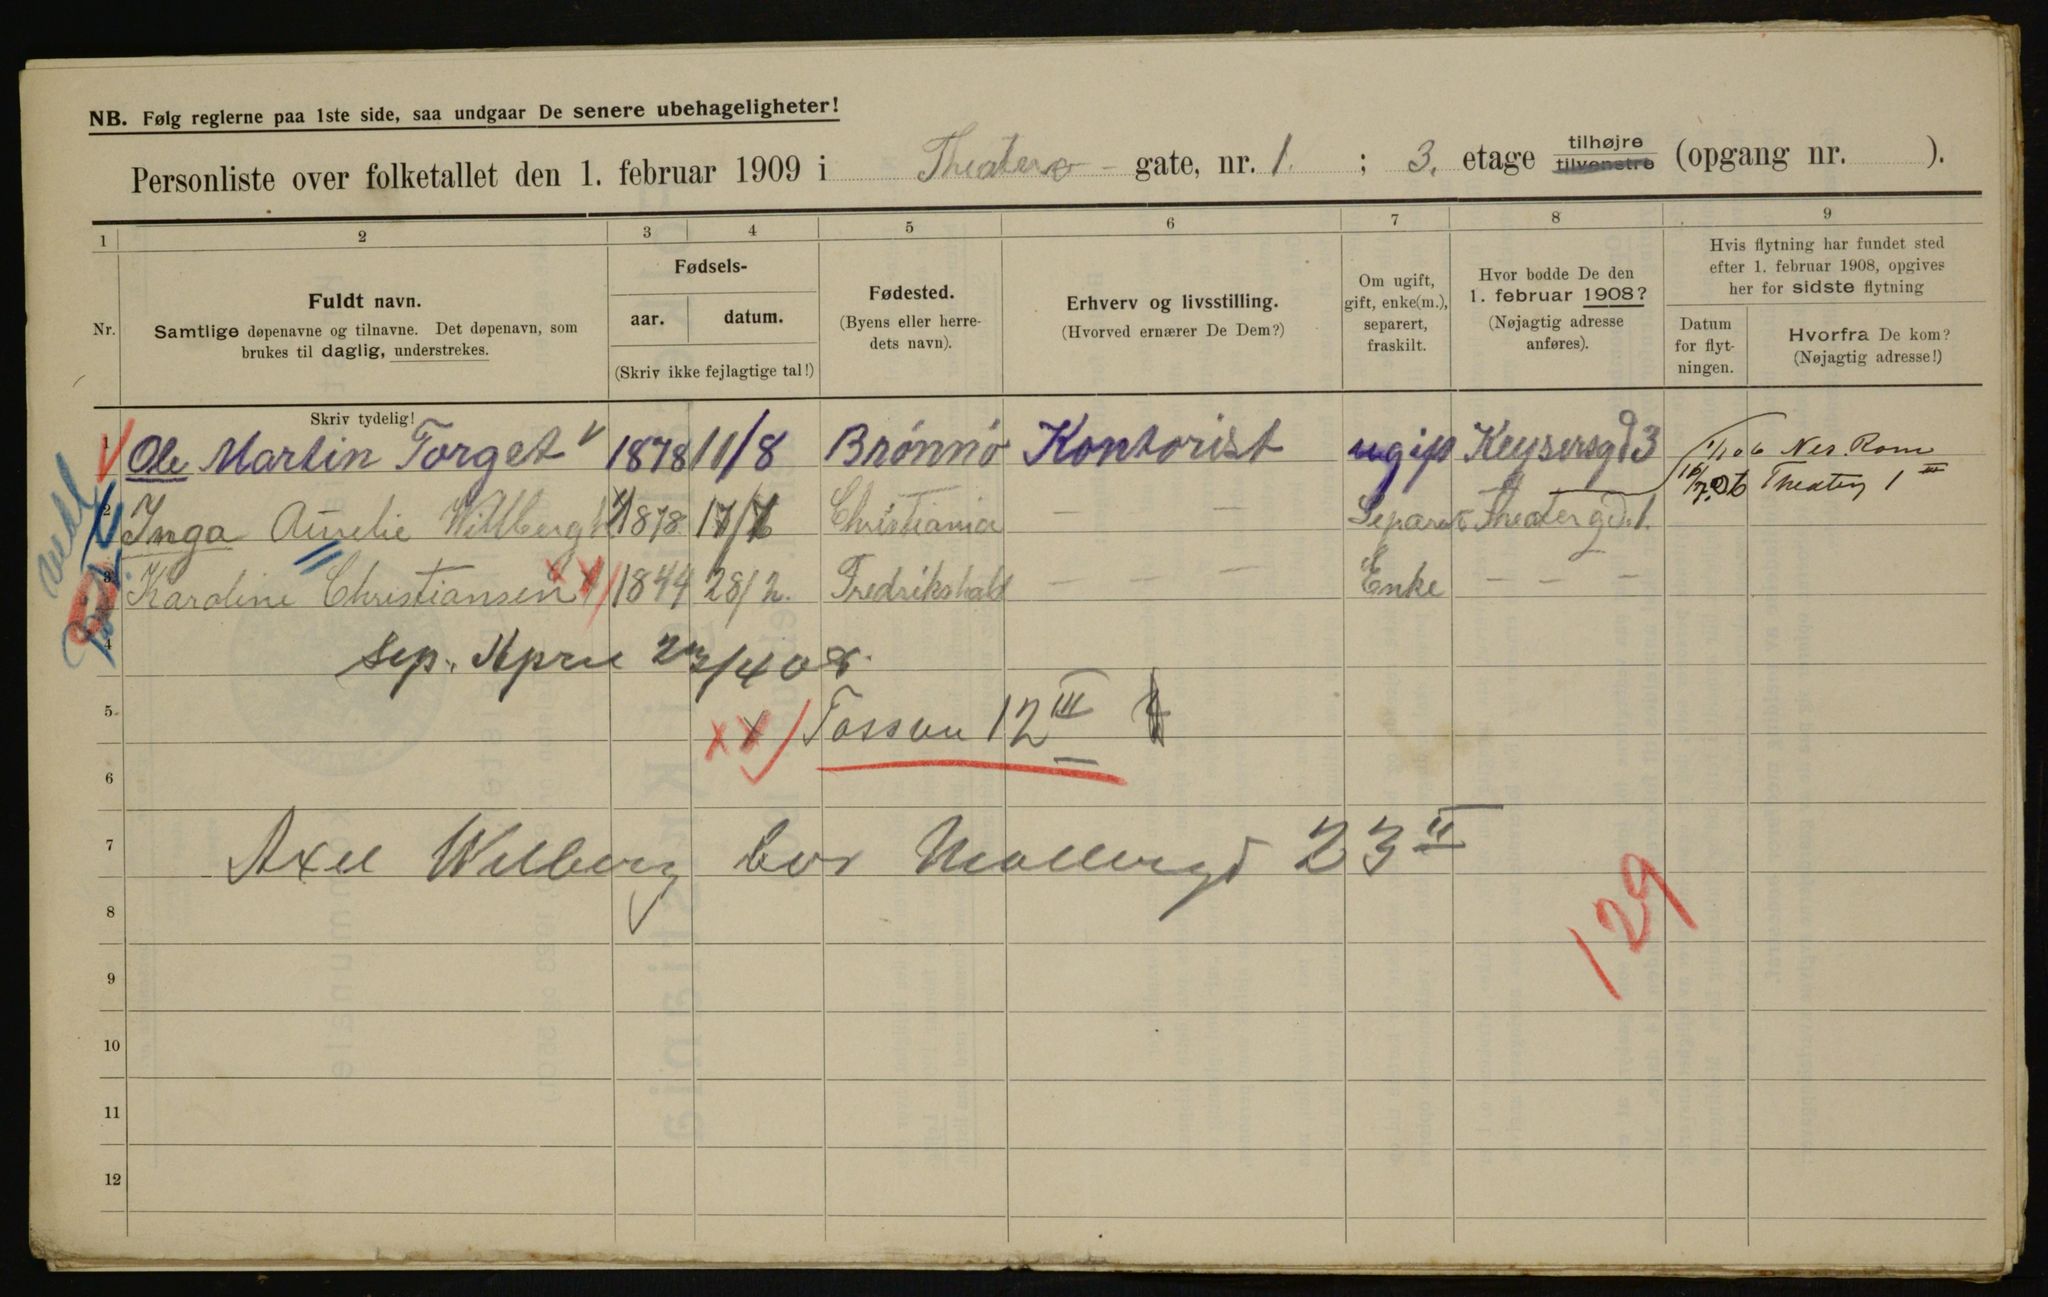 NB. Følg reglerne paa 1ste side, saa undgaar De senere ubehageligheter!
Personliste over folketallet den 1. februar 1909 i Theater - gate, nr. 1. ; 3. etage tilhøjre tilvenstre (opgang nr. ).
1 2 3 4 5 6 7 8 9
Nr.
Fuldt navn.
Samtlige døpenavne og tilnavne. Det døpenavn, som
brukes til daglig, understrekes.
Skriv tydelig!
Fødsels-
aar. datum.
(Skriv ikke fejlagtige tal!)
Fødested.
(Byens eller herre-
dets navn).
Erhverv og livsstilling.
(Hvorved ernærer De Dem?)
Om ugift,
gift, enke(m.),
separert,
fraskilt.
Hvor bodde De den
1. februar 1908?
(Nøjagtig adresse
anføres).
Hvis flytning har fundet sted
efter 1. februar 1908, opgives
her for sidste flytning
Datum
for flyt-
ningen.
Hvorfra De kom?
(Nøjagtig adresse!)
1 Ole Martin Torget 1878 11/8 Brønnø Kontorist ugift Keysersgd 3 1/10 6 Nes. Rom
2 Inga Aurelie Willberg 1878 17/7 Christiania — — — Separert Theatergd. 1. 16/7.06 Theaterg 1 III
3 Karoline Christiansen xx/ 1844 28/2. Fredrikshald — — — Enke — — —
4 sep. April 23/4 08.
5 xx/ Tossen 12 III
6
7 Axel Wilberg bor Møllergd 23 II
8
129
9
10
11
12